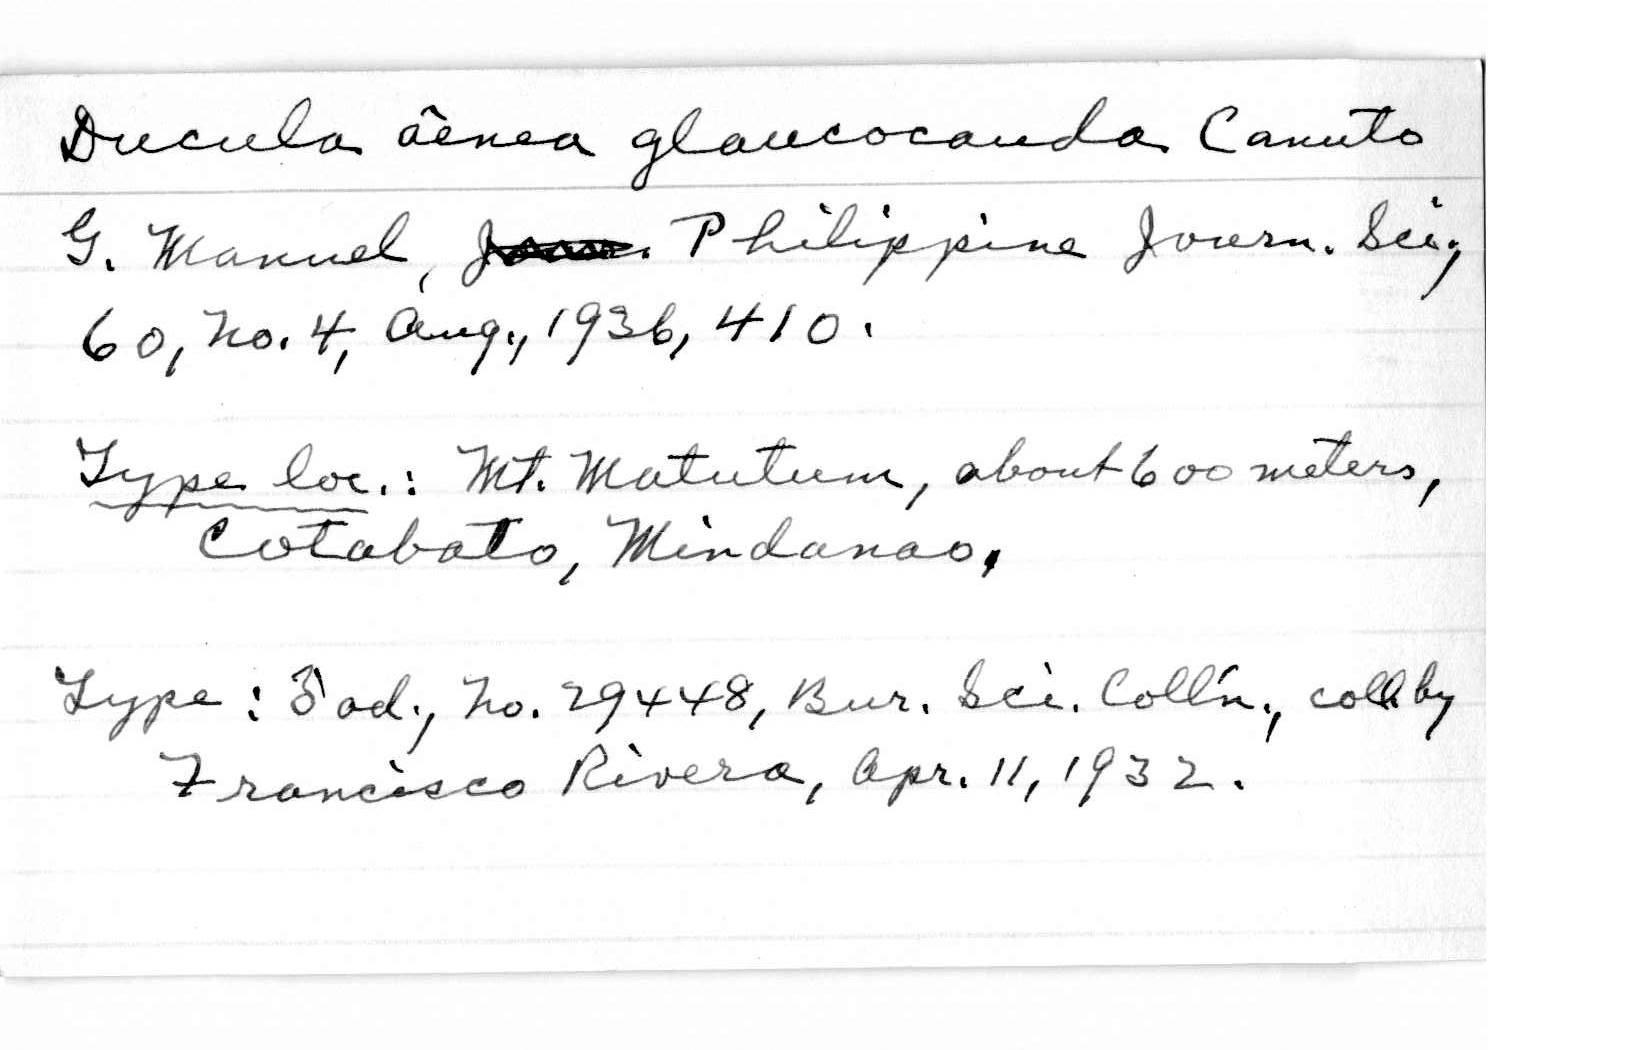 Ducula aënea glaucocauda Canuto
G. Manuel, Philippine Journ. Sci.,
60, no. 4, Aug., 1936, 410.
Type loc.: Mt. Matutum, about 600 meters,
Cotabato, Mindanao.
Type: ♂ ad., no. 29448, Bur. Sci. Coll'n., coll by
Francisco Rivera, Apr. 11, 1932.